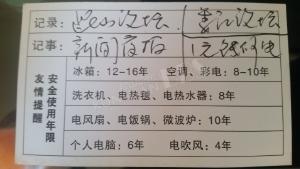 记录：
记事：新闻夜报
安全使用年限
友情提醒
冰箱：12-16年 空调、彩电：8-10年
洗衣机、电热毯、电热水器：8年
电风扇、电饭锅、微波炉：10年
个人电脑：6年 电吹风：4年